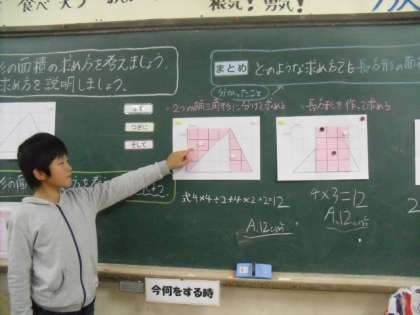 食べ
根気!勇気!
の面積の求め方を考えましょう。
求め方を説明しましょう。
まとめ
どのような求め方でも長方形の面積
分かったこと
まず
つぎに
そして
2つの直角三角形に分けて求める
長方形を作って求める
式4×4÷2+4×2÷2=12
A.12cm²
4×3=12
A.12cm²
今何をする時